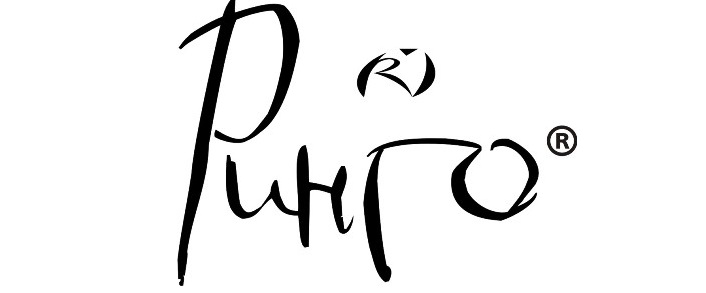 Ринго®